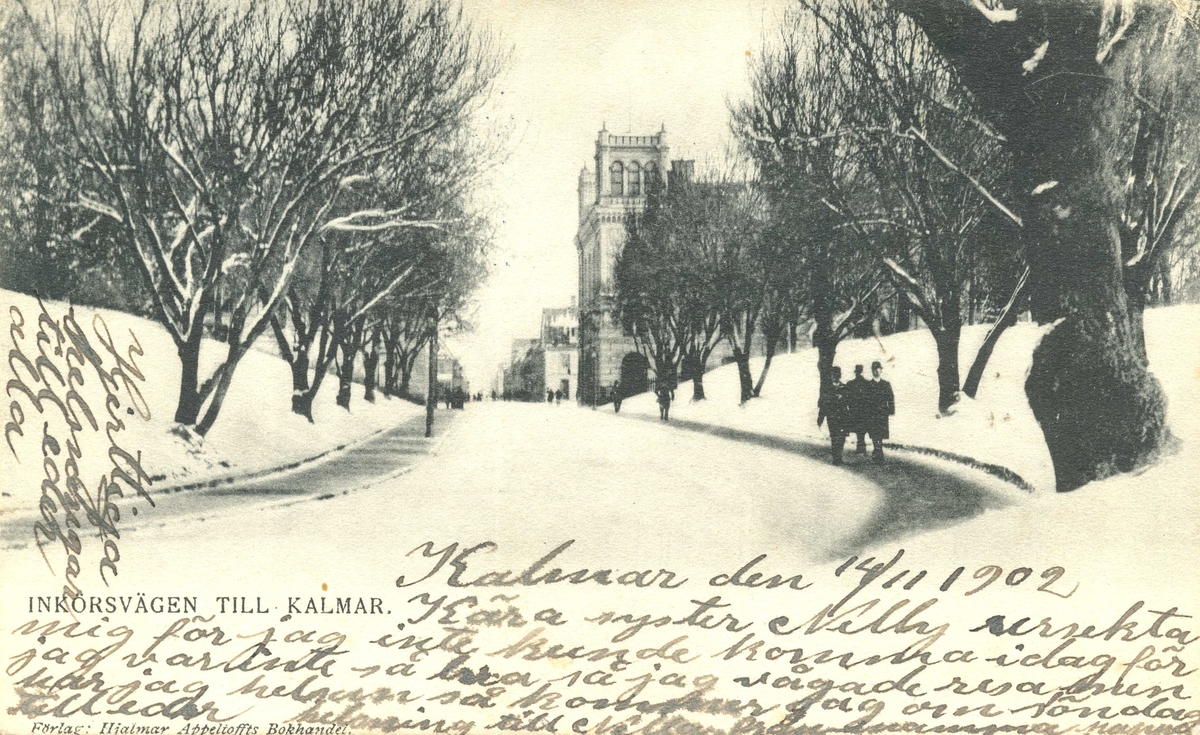 Kalmar den 14/11 1902
INKÖRSVÄGEN TILL KALMAR.
Kära syster Nelly ursekta
mig för jag inte kunde komma idag för
jag var inte så bra så jag vågade resa men
har jag helsan så kommer jag om söndag
till eder helsning till Nelly från mamma
Förlag: Hjalmar Appeltoffts Bokhandel.
Hjertliga
helsningar
till eder
alla